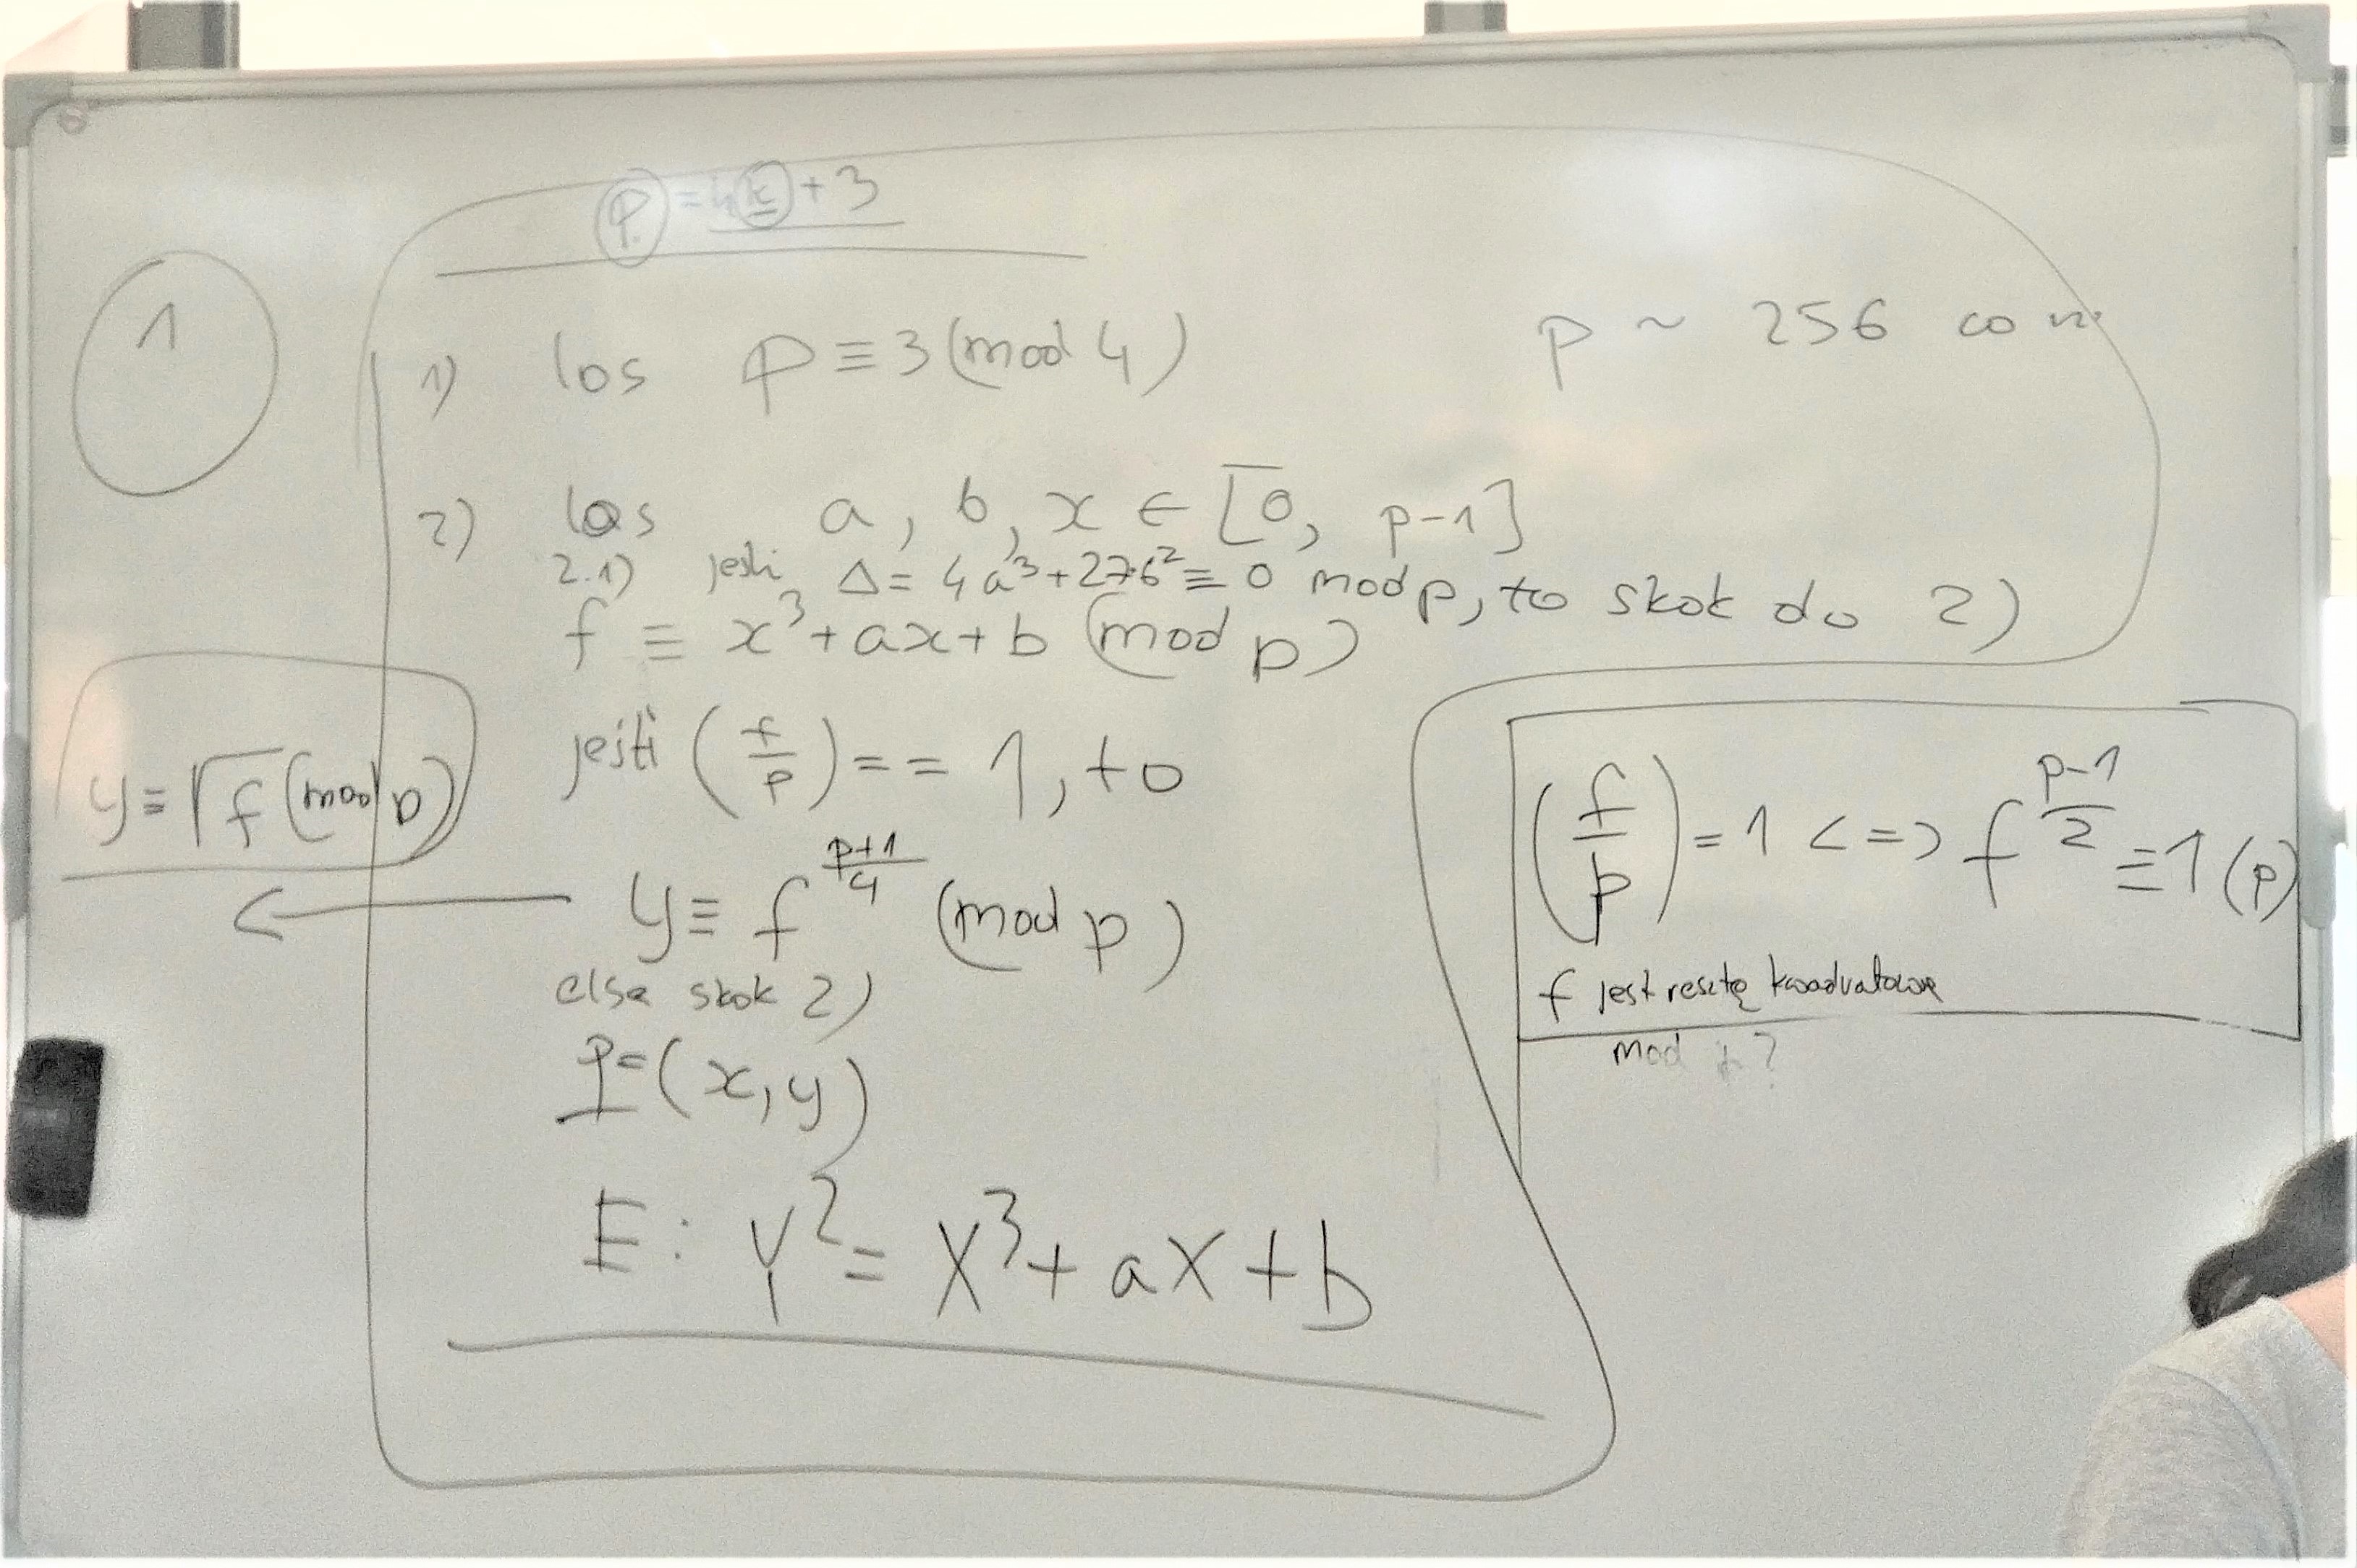 1
p = 4k + 3
1) los p ≡ 3 (mod 4)
p ~ 256 co
2) los a, b, x ∈ [0, p-1]
2.1) jeśli Δ = 4a³ + 27b² ≡ 0 mod p, to skok do 2)
f ≡ x³ + ax + b (mod p)
jeśli (f/p) == 1, to
y ≡ f^((p+1)/4) (mod p)
y ≡ √f (mod p)
←
else skok 2)
P = (x, y)
E: Y² = X³ + aX + b
(f/p) = 1 <=> f^((p-1)/2) ≡ 1 (p)
f jest resztą kwadratową
mod p?